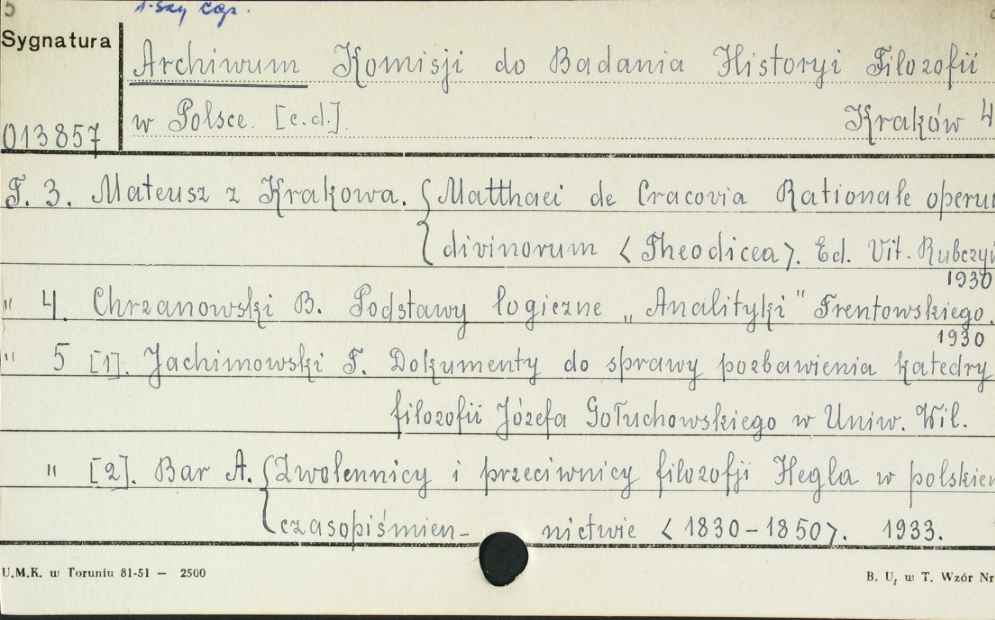 5 1-szy egz.
Sygnatura
Archiwum Komisji do Badania Historyi Filozofii
w Polsce. [c.d.]. Kraków 4
013857
T. 3. Mateusz z Krakowa. {Matthaei de Cracovia Rationale operu
divinorum <Theodicea>. Ed. Vit. Rubczyń
1930
" 4. Chrzanowski B. Podstawy logiczne „Analityki" Trentowskiego.
1930
" 5 [1]. Jachimowski T. Dokumenty do sprawy pozbawienia katedry
filozofii Józefa Gołuchowskiego w Uniw. Wil.
" [2]. Bar A. {Zwolennicy i przeciwnicy filozofji Hegla w polskiem
czasopiśmien- nictwie <1830-1850>. 1933.
U.M.K. w Toruniu 81-51 — 2500 B. U. w T. Wzór Nr